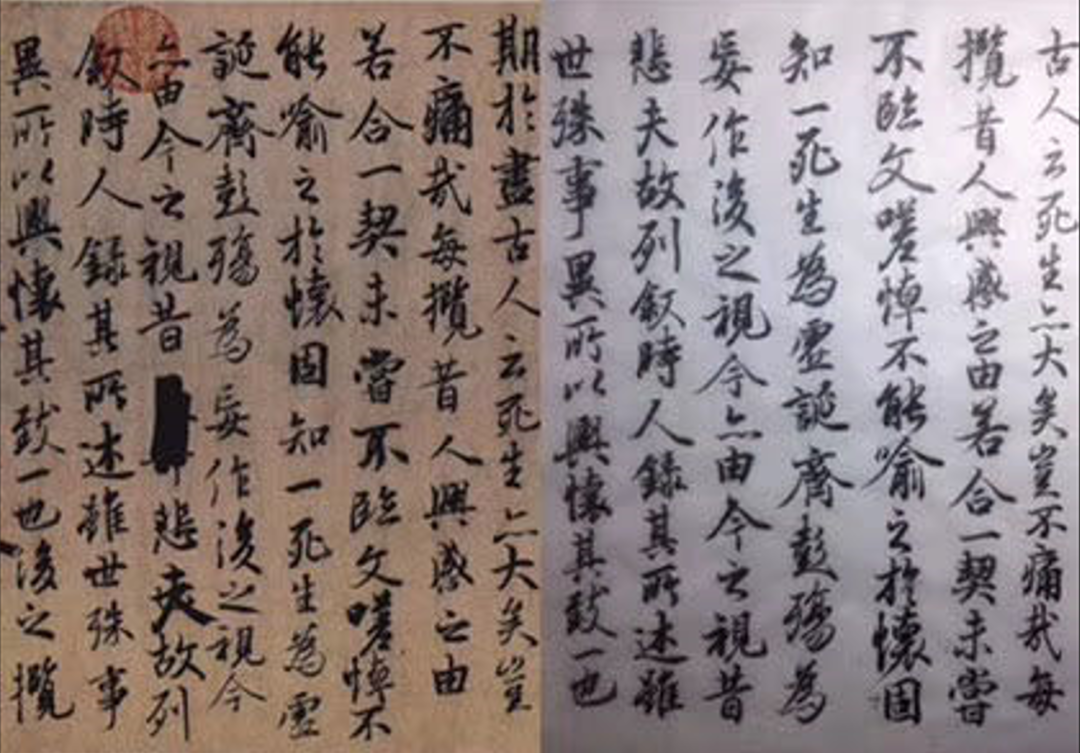 期於盡古人云死生亦大矣豈
不痛哉每攬昔人興感之由
若合一契未嘗不臨文嗟悼不
能喻之於懷固知一死生為虛
誕齊彭殤為妄作後之視今
亦由今之視昔悲夫故列
叙時人錄其所述雖世殊事
異所以興懷其致一也後之攬
古人云死生亦大矣豈不痛哉每
攬昔人興感之由若合一契未嘗
不臨文嗟悼不能喻之於懷固
知一死生為虛誕齊彭殤為
妄作後之視今亦由今之視昔
悲夫故列叙時人錄其所述雖
世殊事異所以興懷其致一也